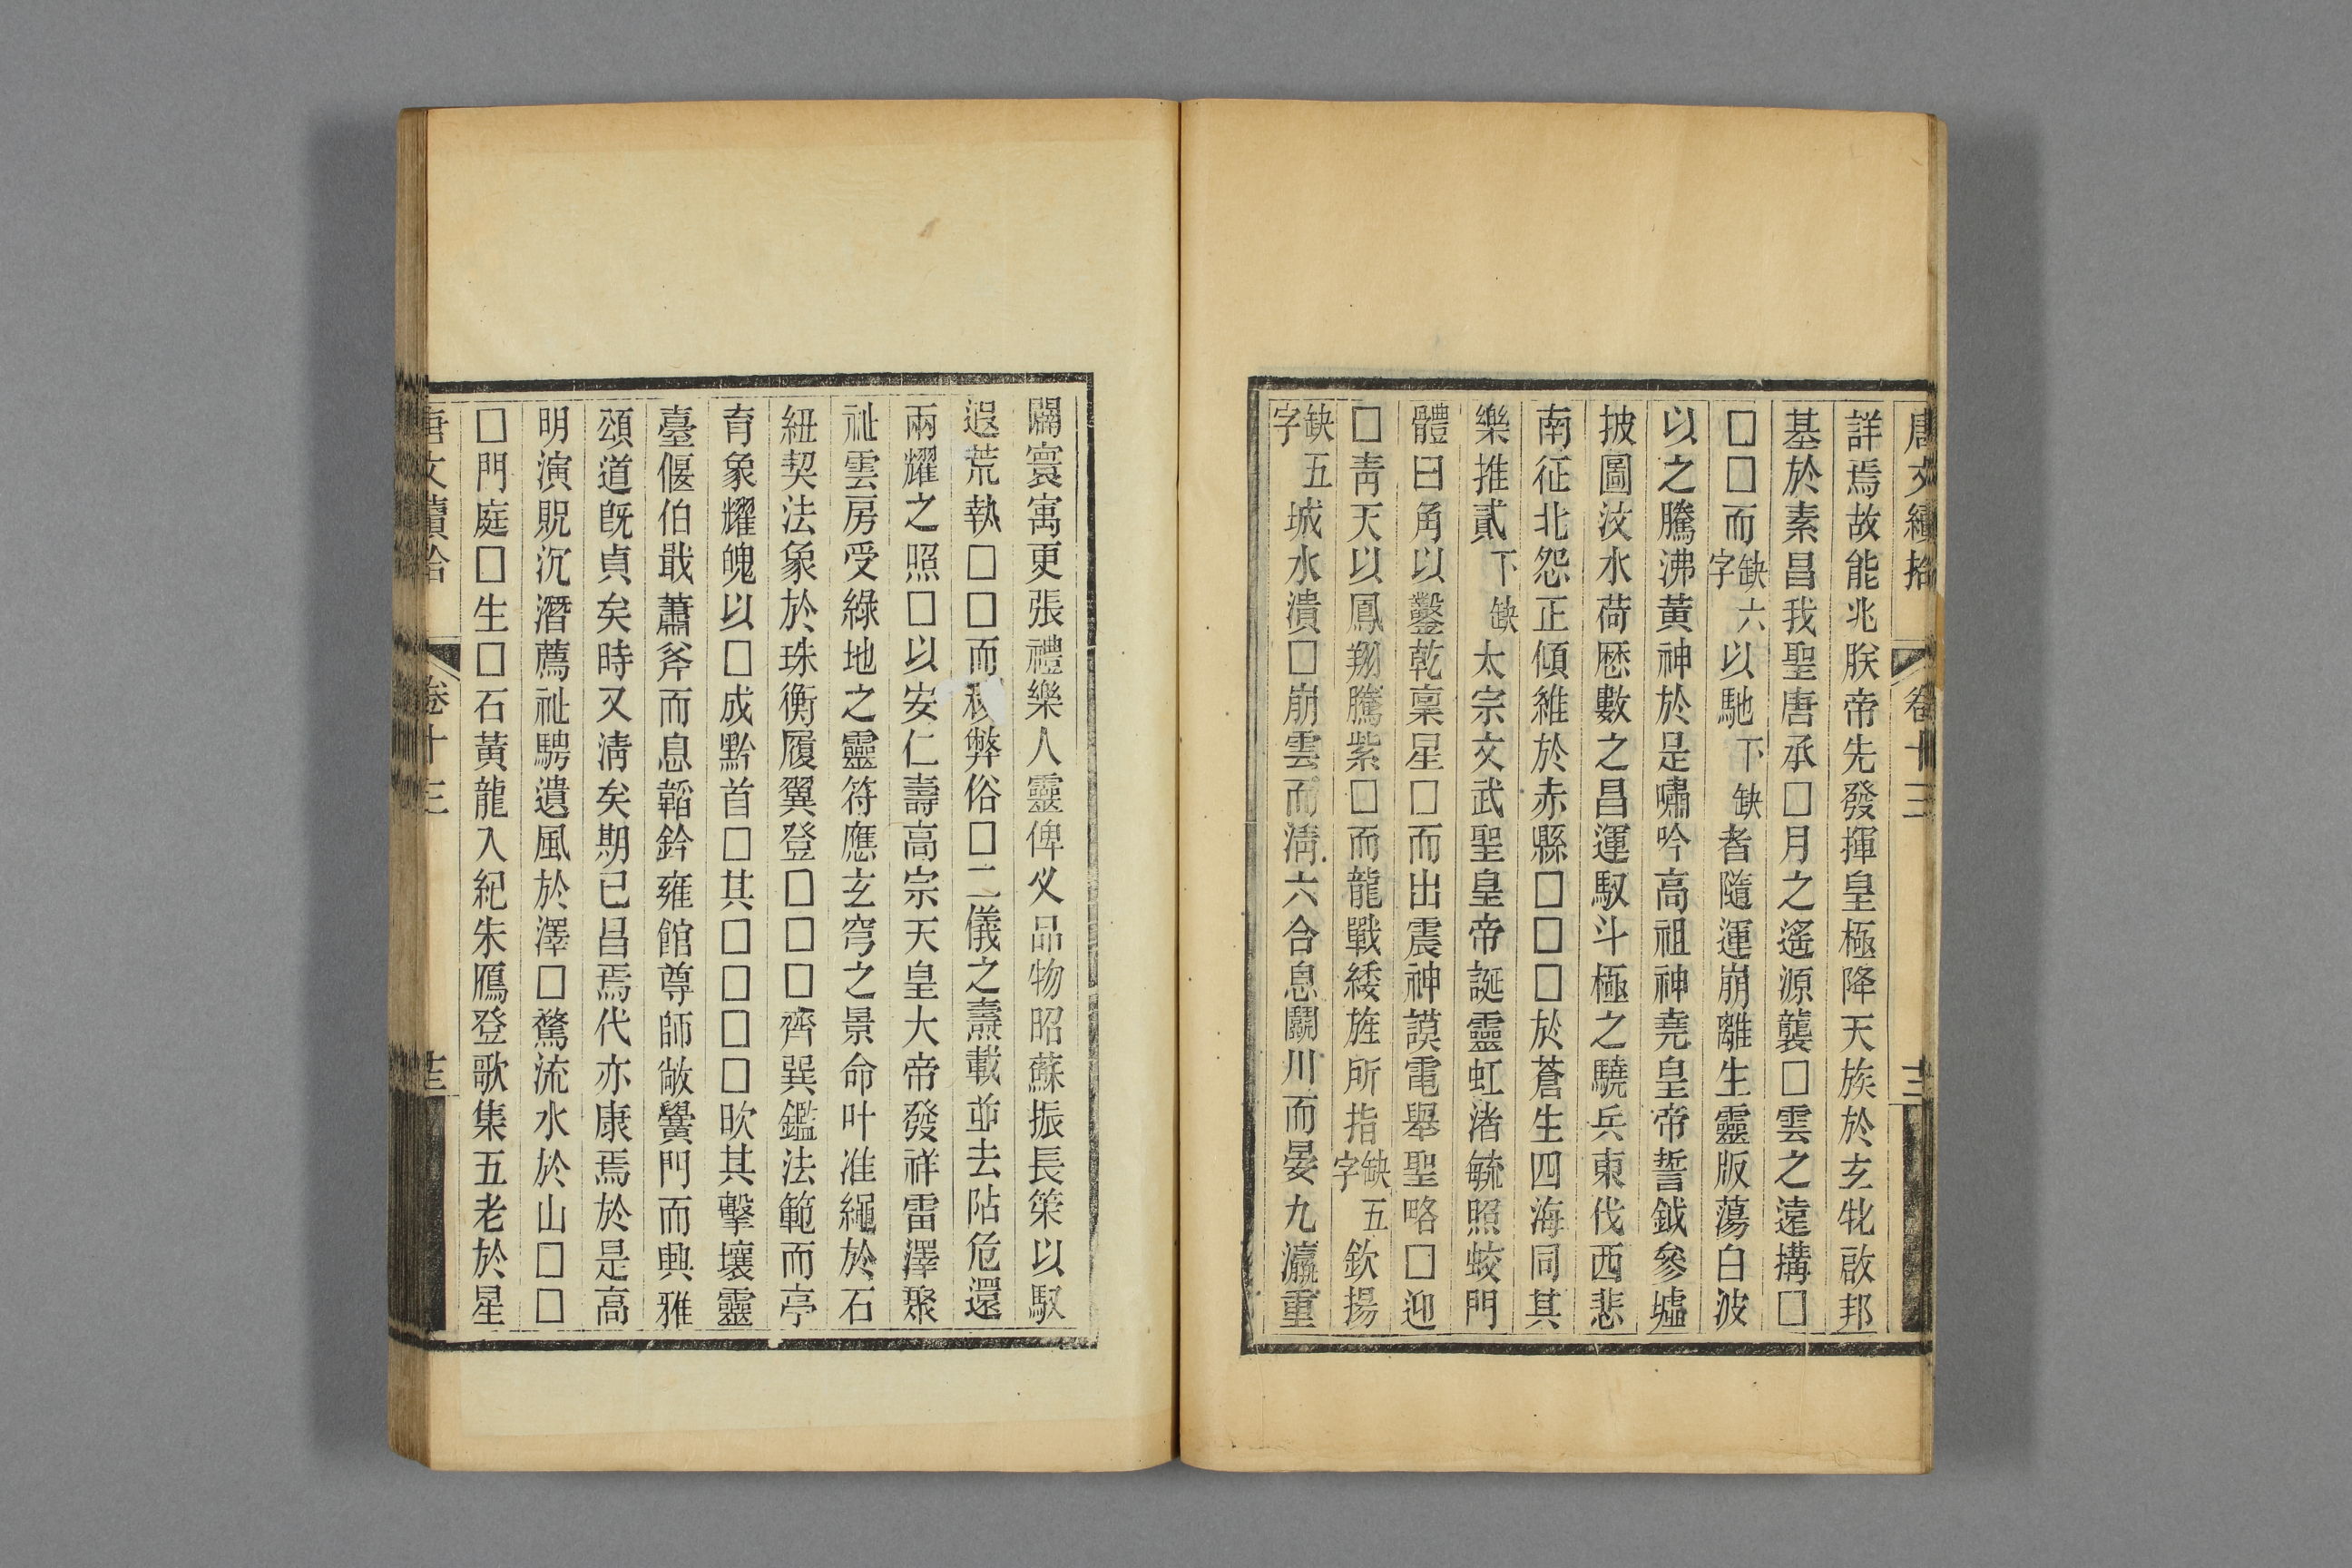 唐文續拾 卷十三 十三
詳焉故能兆朕帝先發揮皇極降天族於玄牝啟邦
基於素昌我聖唐承□月之遙源襲□雲之遠搆□
□□而缺六字以馳下缺者隨運崩離生靈版蕩白波
以之騰沸黃神於是嘯吟高祖神堯皇帝誓鉞參墟
披圖汶水荷厯數之昌運馭斗極之驍兵東伐西悲
南征北怨正傾維於赤縣□□□於蒼生四海同其
樂推貳下缺太宗文武聖皇帝誕靈虹渚毓照蛟門
體日角以鑿乾稟星□而出震神謨電舉聖略□迎
□青天以鳳翔騰紫□而龍戰緌旌所指缺五字欽揚
缺五字城水潰□崩雲而清六合息鬬川而晏九瀛重
闢寰寓更張禮樂人靈俾乂品物昭蘇振長策以馭
遐荒執□□而移弊俗□二儀之燾載並去阽危還
兩耀之照□以安仁壽高宗天皇大帝發祥雷澤聚
祉雲房受綠地之靈符應玄穹之景命叶准繩於石
紐契法象於珠衡履翼登□□□齊巽鑑法範而亭
育象耀魄以□成黔首□其□□□□欥其擊壤靈
臺偃伯戢蕭斧而息韜鈐雍館尊師敞黌門而興雅
頌道既貞矣時又清矣期已昌焉代亦康焉於是高
明演貺沉潛薦祉騁遺風於澤□驚流水於山□□
□門庭□生□石黃龍入紀朱鴈登歌集五老於星
唐文續拾 卷十三